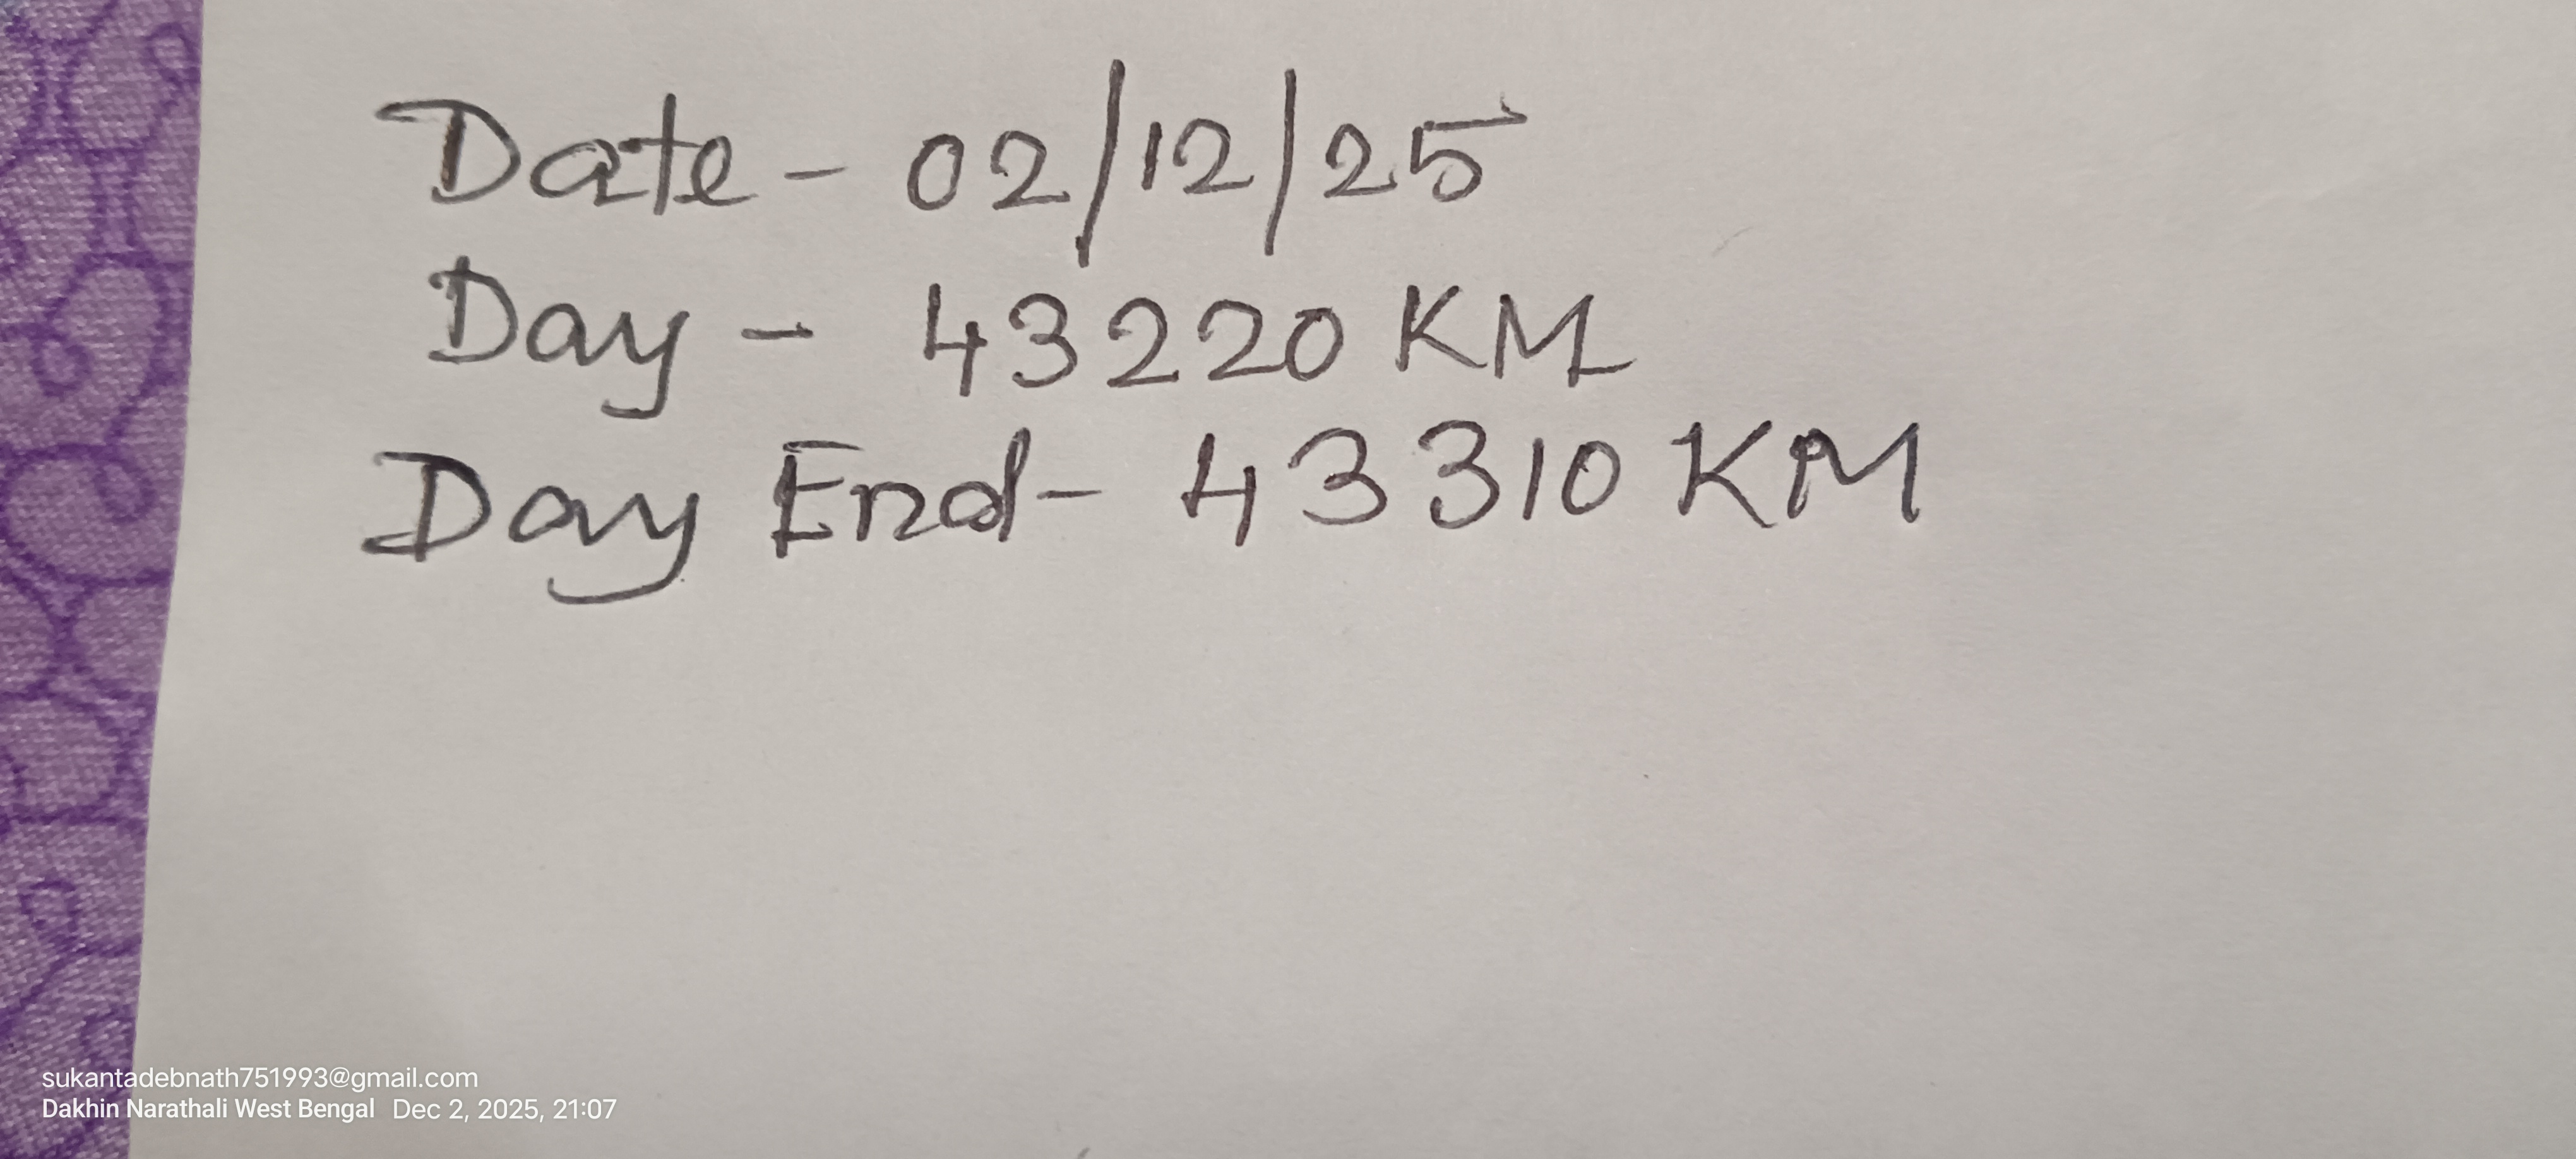 Date - 02/12/25
Day - 43220 KM
Day End - 43310 KM
sukantadebnath751993@gmail.com
Dakhin Narathali West Bengal Dec 2, 2025, 21:07